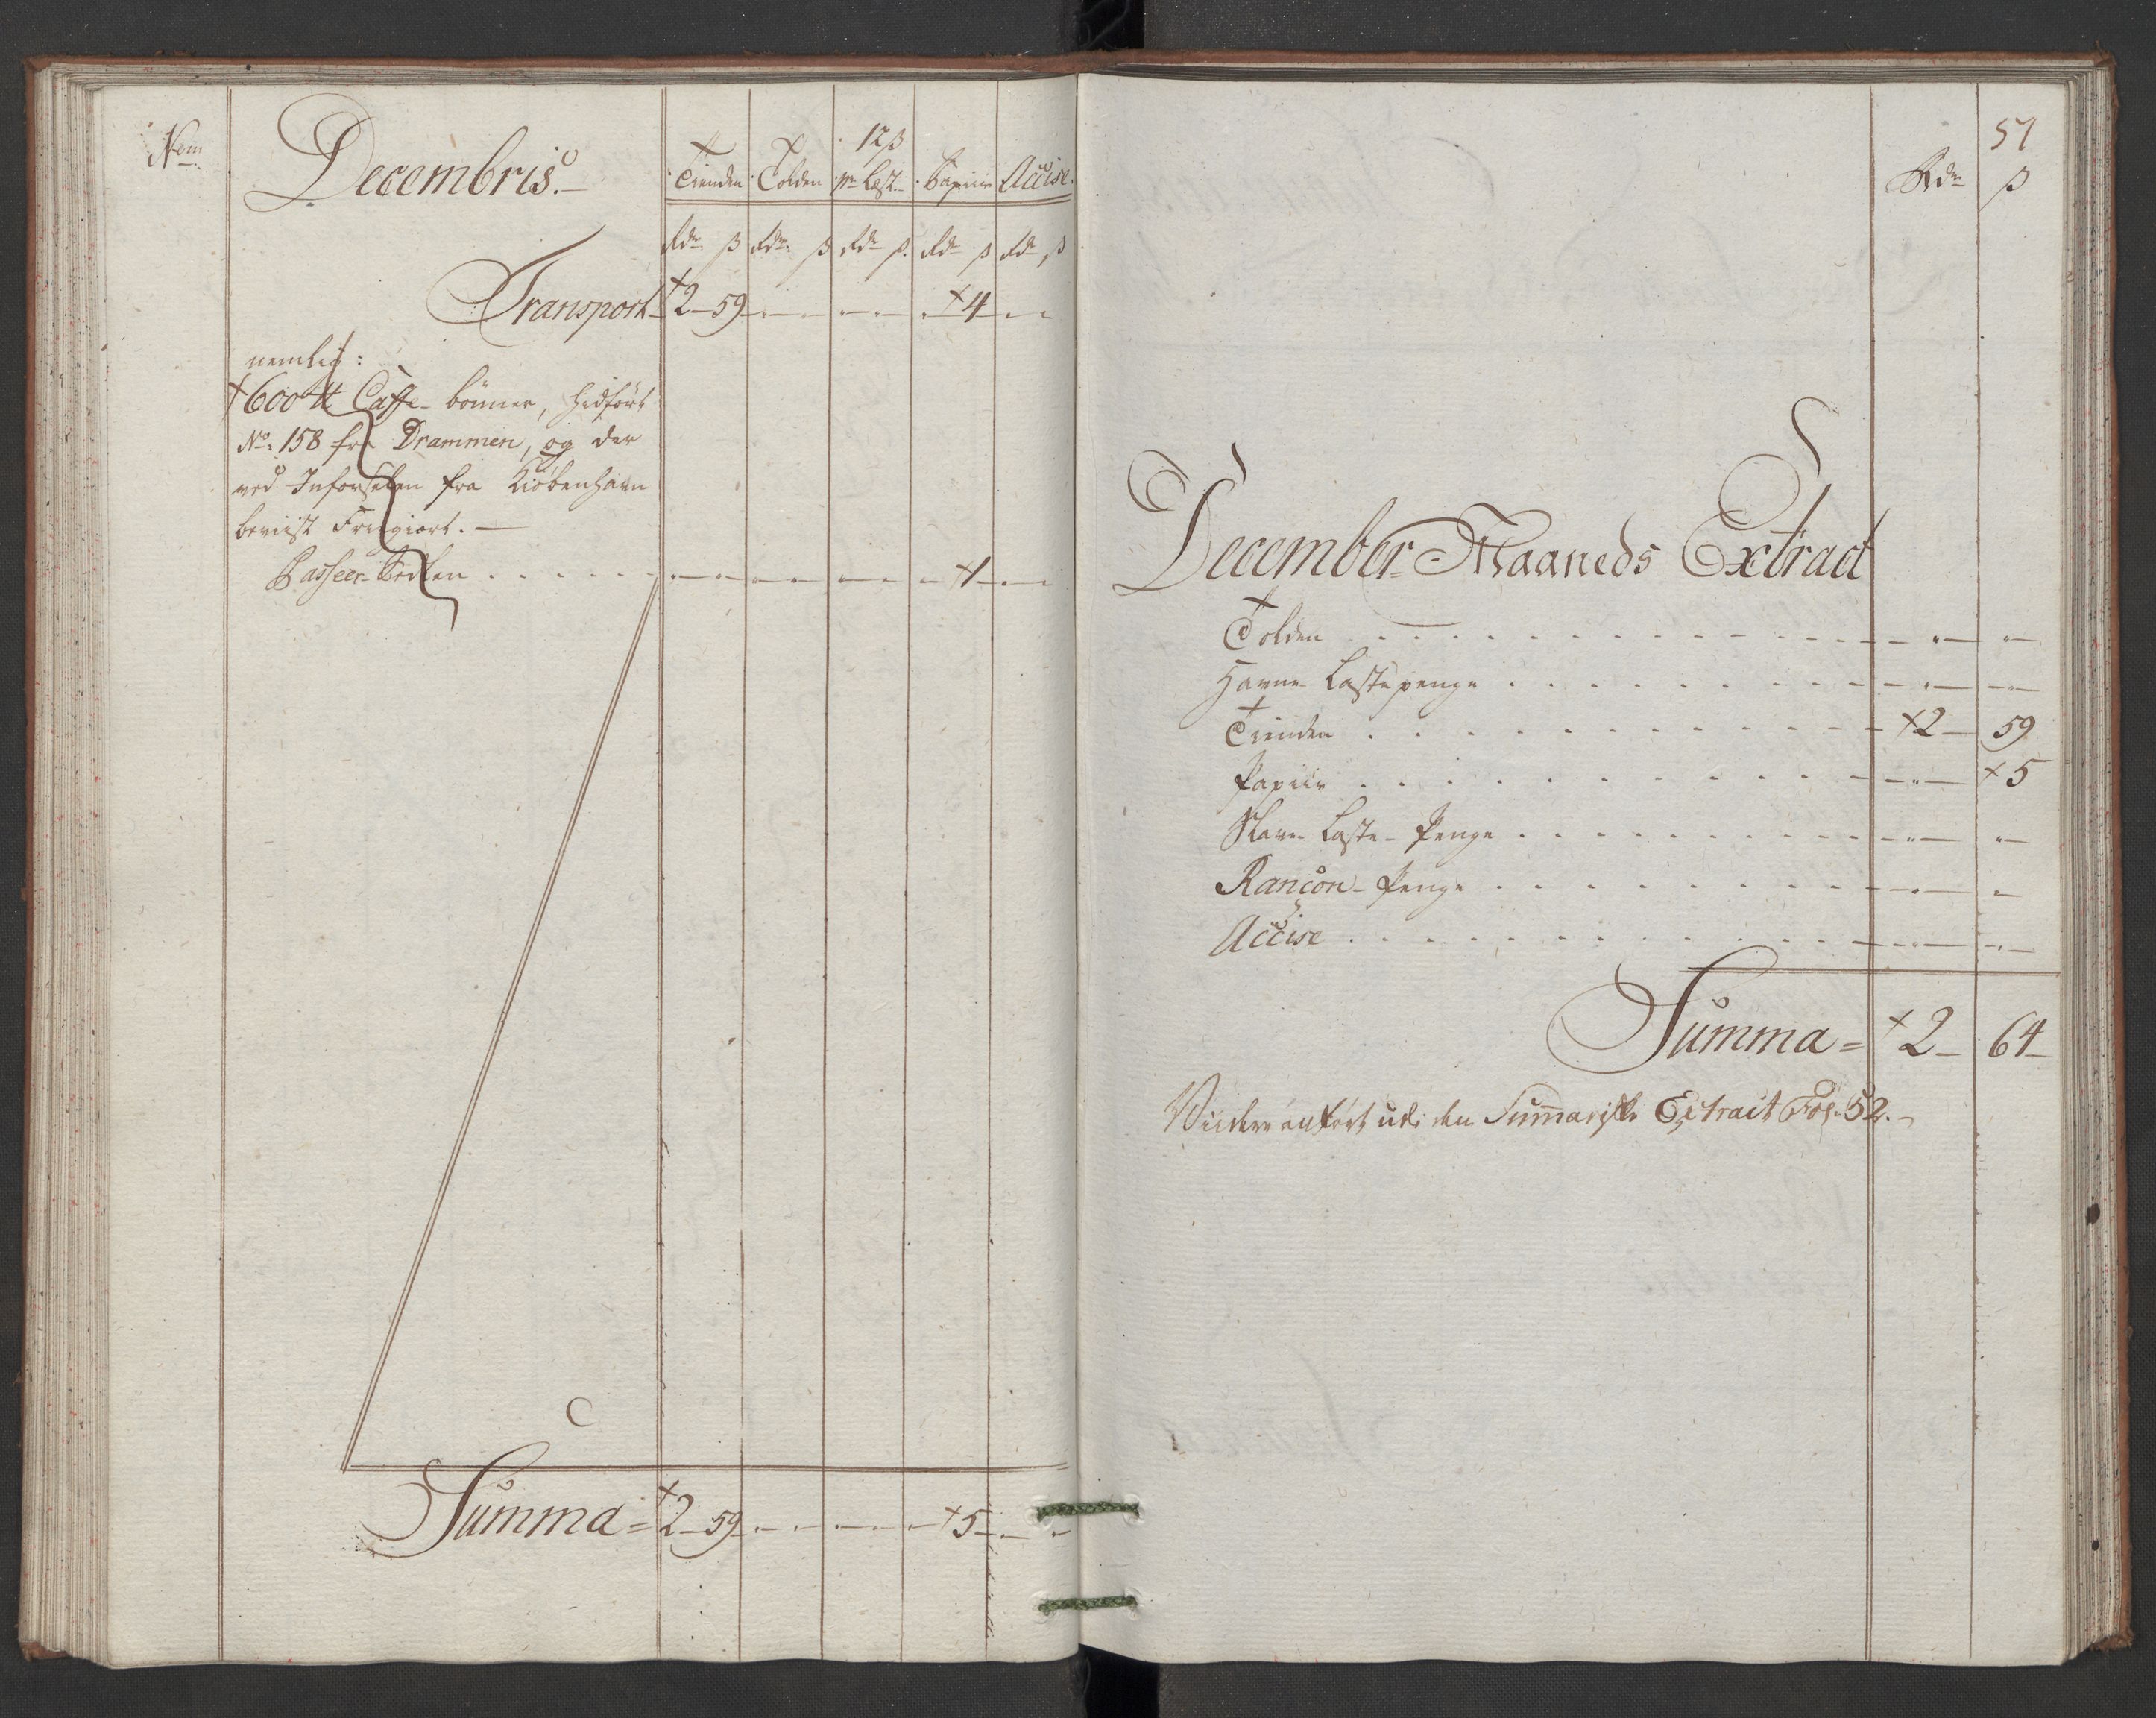 Nem
Decembris.
Tienden Tolden 12 β pr Lest. Papiir Accise.
Rdr β Rdr β Rdr β Rdr β Rdr β
Transport 2 - 59 - - - 4 - -
nemlig:
600 ℔ Caffe-bönner, hidfört
No: 158 fra Drammen, og der
ved Indförselen fra Kiöbenhavn
beviist Friegiort. —
Passeer-Sedlen . . . . . - - - - 1 - -
Summa = 2 - 59 - - - 5 - -
51
Rdr β
December-Maaneds Extract
Tolden . . . . . - -
Havne Lastepenge . . . . . - -
Tienden . . . . . 2 - 59
Papiir . . . . . - 5
Slave Laste-Penge . . . . . - -
Rançon-Penge . . . . . - -
Accise . . . . . - -
Summa = 2 - 64 -
Viidere anfört udi den Summariske Extrait Fol. 52. -